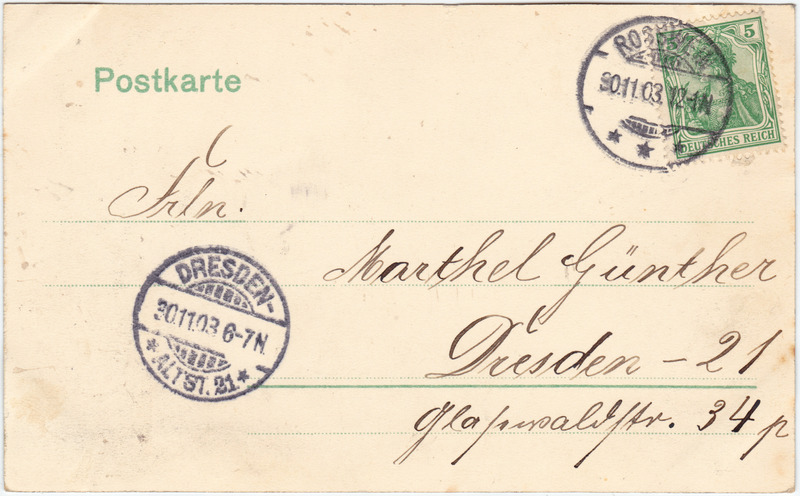 Postkarte
5
DEUTSCHES REICH
ROSSWEIN
30.11.03. 12-1N
Frln.
Marthel Günther
DRESDEN-
30.11.03 6-7N.
ALTST. 21
Dresden - 21
Glaßwaldstr. 34 p